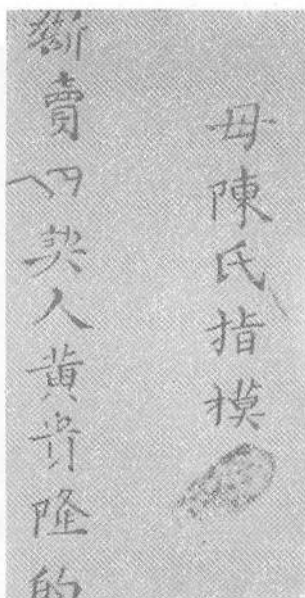 母陳氏指摸
斷賣契人黃貴隆的